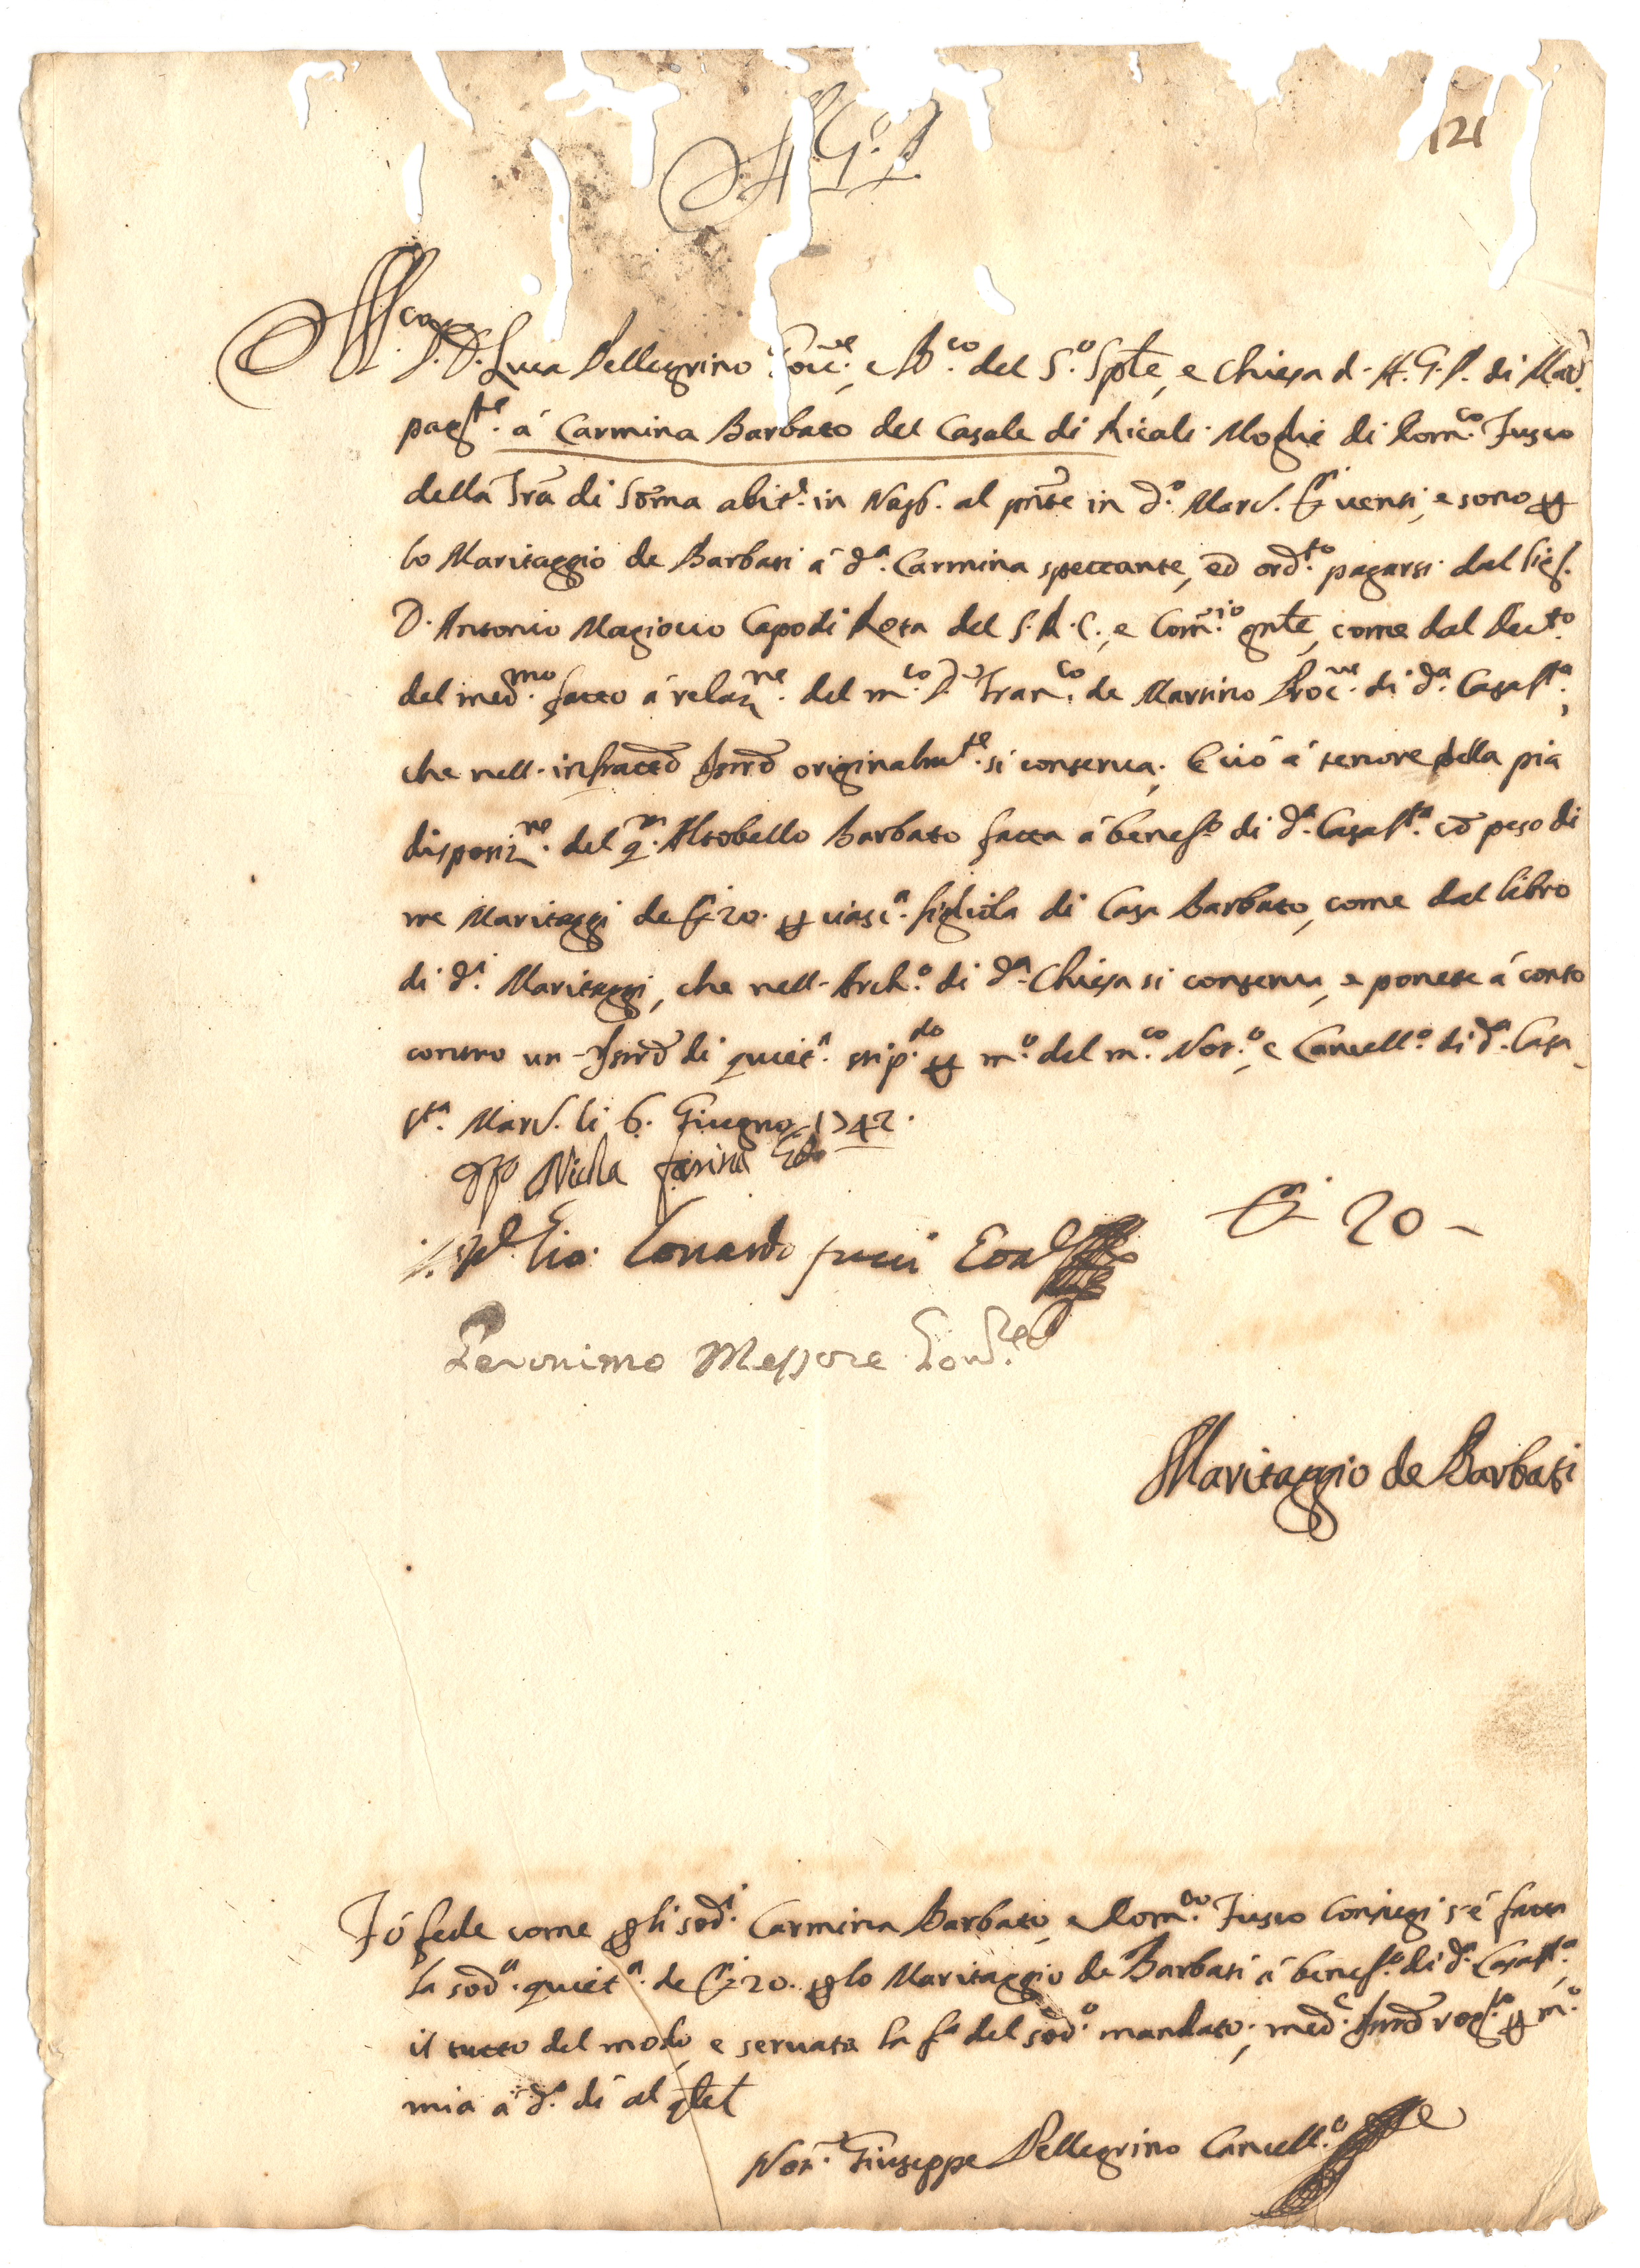 A. G. P.
121
Mco. P. D. Luca Pellegrino Proc.re, e B.co del S.o Sple, e Chiesa d. A. G. P. di Mard.
pag.te á Carmina Barbato del Casale di Licali Moglie di Dom.co Fusco
della Tra di Soma abit.e in Nap. al pnte in d.o Mard. D.i venti, e sono p
lo Maritaggio de Barbati á d.a Carmina spettante, ed ord.to pagarsi dal Sig.
D. Antonio Magiocco Capo di Rota del S. R. C., e Com.rio gnle, come dal Dec.to
del med.mo fatto á relaz.ne del m.co D.r Fran.co de Martino Proc.re di d.a Casa S.ta,
che nell'infratto Istro originalm.te si conserva. E ciò á tenore della pia
disposiz.ne del q.m Altobello Barbato fatta á benef.o di d.a Casa S.ta co peso di
tre Maritaggi de D.i 20. p ciasc.a figliola di Casa Barbato, come dal libro
di d.i Maritaggi, che nell'Arch.o di d.a Chiesa si conserva, e ponete á conto
contro un Istro di quiet.a stip.do p m.o del m.co Not.o, e Cancell.o di d.a Casa
S.ta Mard. li 6. Giugno 1742.
Nicola Farina
Gio: Lonardo
D.i 20 -
Geronimo Messore Gov.re
Maritaggio de Barbati
Fó fede come p li sod.i Carmina Barbato, e Dom.co Fusco Coniugi s'é fatta
la sod.a quiet.a de D.i 20. p lo Maritaggio de Barbati á benef.o di d.a Casa S.ta,
il tutto del modo, e servata la f.a del sod.o mandato; med.e Istro rog.to p m.o
mia á d.o dí al qle
Not.r Giuseppe Pellegrino Cancell.o